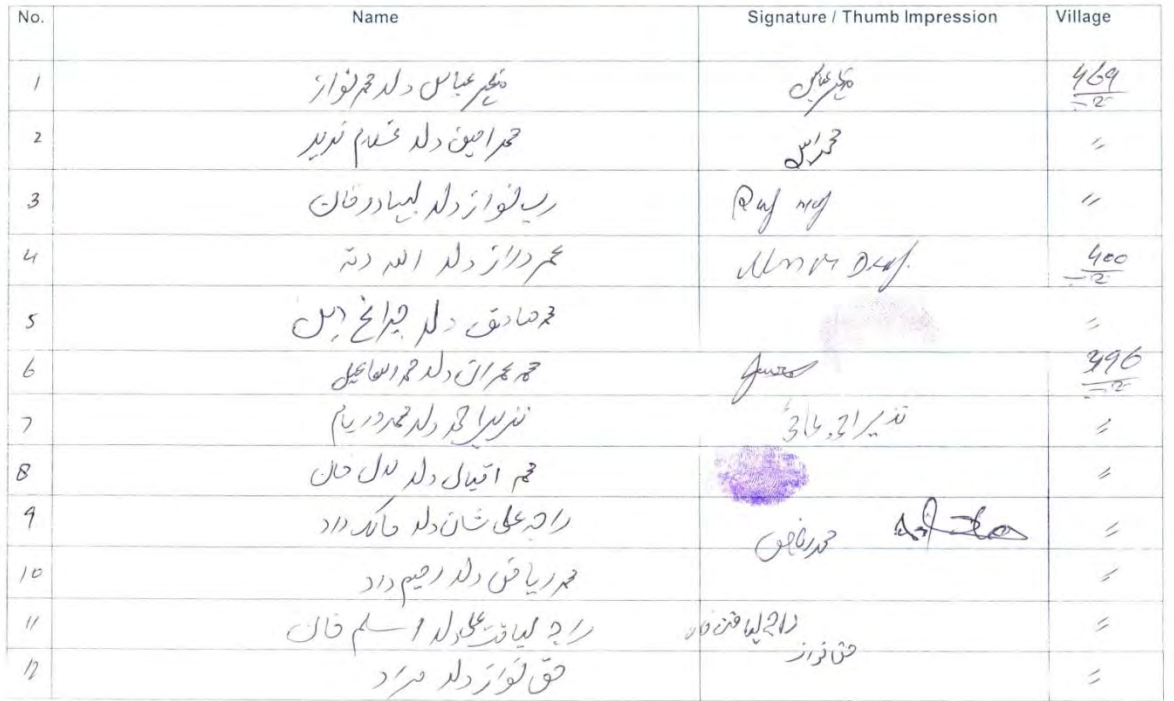 No. Name Signature / Thumb Impression Village
1 عباس ولد محمد نواز 469/2
2 محمد امین ولد غلام فرید محمد امین "
3 رب نواز ولد بہادر خان "
4 عمر دراز ولد اللہ دتہ 400/2
5 محمد صادق ولد چراغ دین "
6 محمد عمران ولد محمد اسماعیل 396/2
7 نذیر احمد ولد محمد دریام نذیر احمد "
8 محمد اقبال ولد لال خان "
9 راجہ علی شان ولد داد محمد ریاض "
10 محمد ریاض ولد رحیم داد "
11 راجہ لیاقت علی ولد اسلم خان راجہ لیاقت "
12 حق نواز ولد مراد حق نواز "